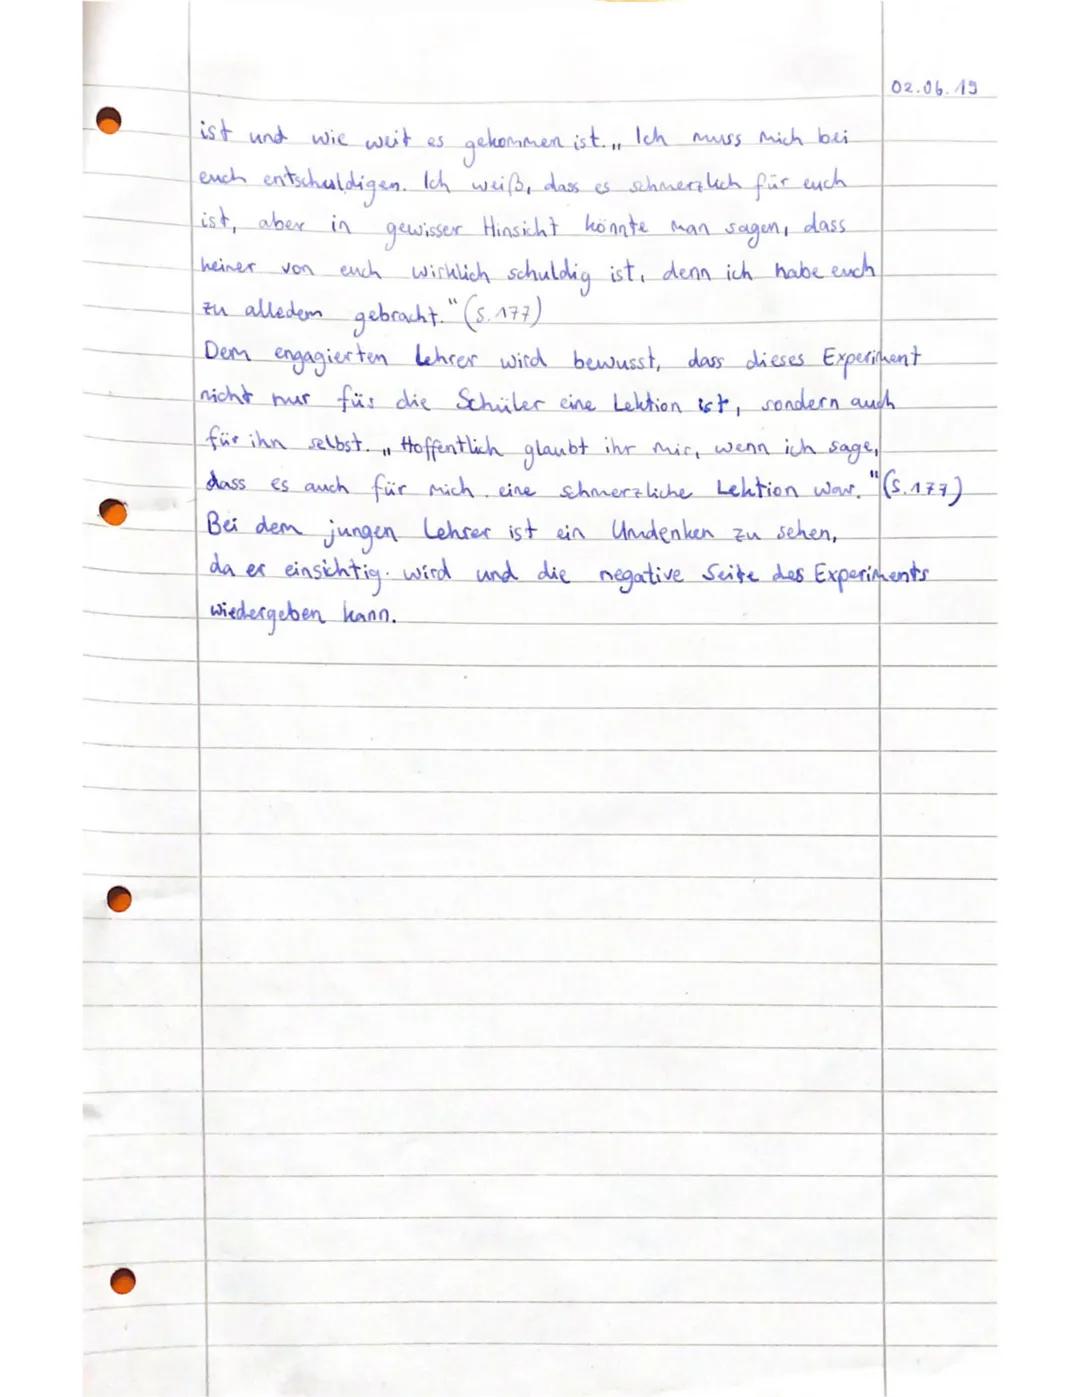 02.06.19
ist und wie weit es gekommen ist. „ Ich muss mich bei
euch entschuldigen. Ich weiß, dass es schmerzlich für euch
ist, aber in gewisser Hinsicht könnte man sagen, dass
keiner von euch wirklich schuldig ist, denn ich habe euch
zu alledem gebracht." (S. 177)
Dem engagierten Lehrer wird bewusst, dass dieses Experiment
nicht nur für die Schüler eine Lektion ist, sondern auch
für ihn selbst. „ Hoffentlich glaubt ihr mir, wenn ich sage,
dass es auch für mich eine schmerzliche Lektion war." (S. 177)
Bei dem jungen Lehrer ist ein Umdenken zu sehen,
da er einsichtig wird und die negative Seite des Experiments
wiedergeben kann.